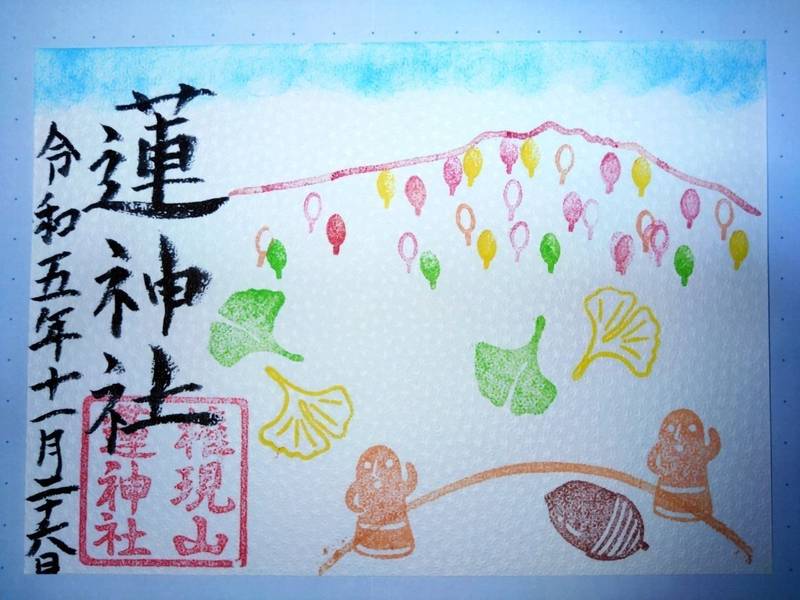 蓮神社
令和五年十一月二十六日
権現山
蓮神社